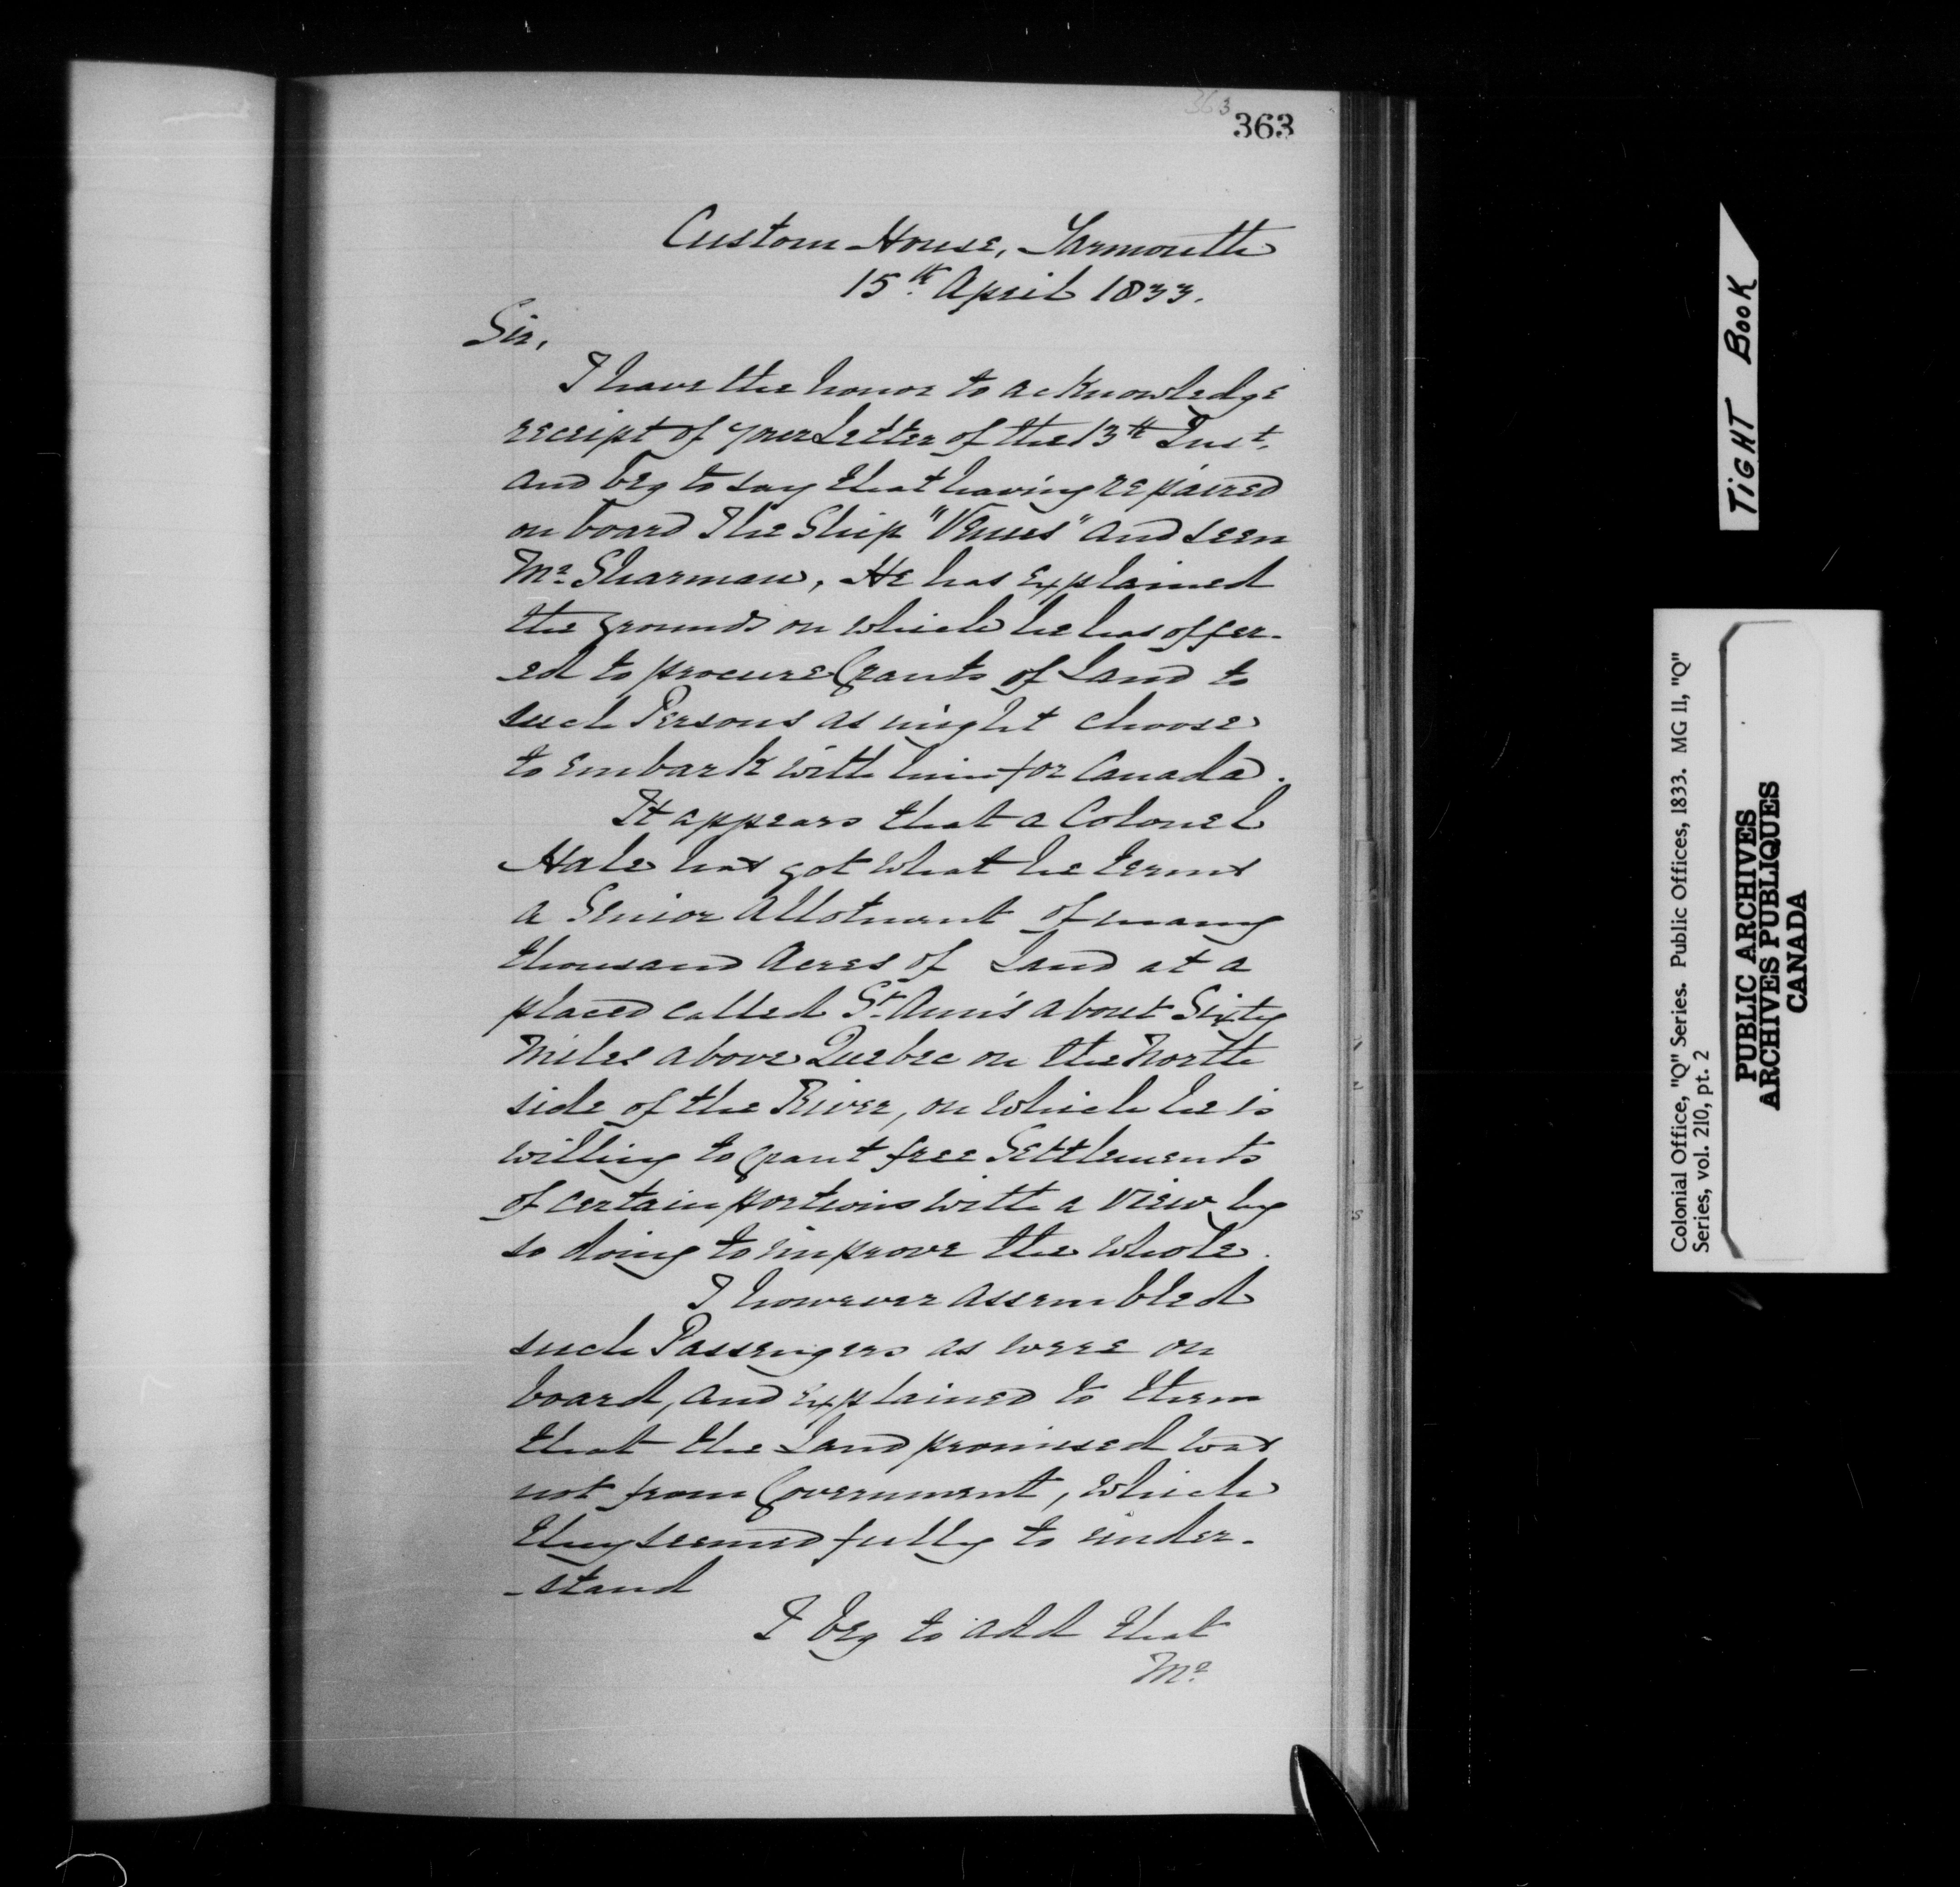 363
363
Custom House, Yarmouth
15th April 1833.
Sir,
I have the honor to acknowledge
receipt of your Letter of the 13th Inst,
and beg to say that having repaired
on board The Ship "Venus" and seen
Mr. Sharman, He has explained
the grounds on which he has offer-
-ed to procure Grants of Land to
such Persons as might choose
to embark with him for Canada.
It appears that a Colonel
Hale has got what he terms
a Senior Allotment of many
thousand Acres of Land at a
placed called St. Ann's about Sixty
Miles above Quebec on the North
side of the River, on which he is
willing to grant free Settlements
of certain portions with a view by
so doing to improve the whole.
I however assembled
such Passengers as were on
board, and explained to them
that the Land promised was
not from Government, which
they seemed fully to under-
-stand
I beg to add that
Mr.
TIGHT BOOK
Colonial Office, "Q" Series. Public Offices, 1833. MG 11, "Q"
Series, vol. 210, pt. 2
PUBLIC ARCHIVES
ARCHIVES PUBLIQUES
CANADA